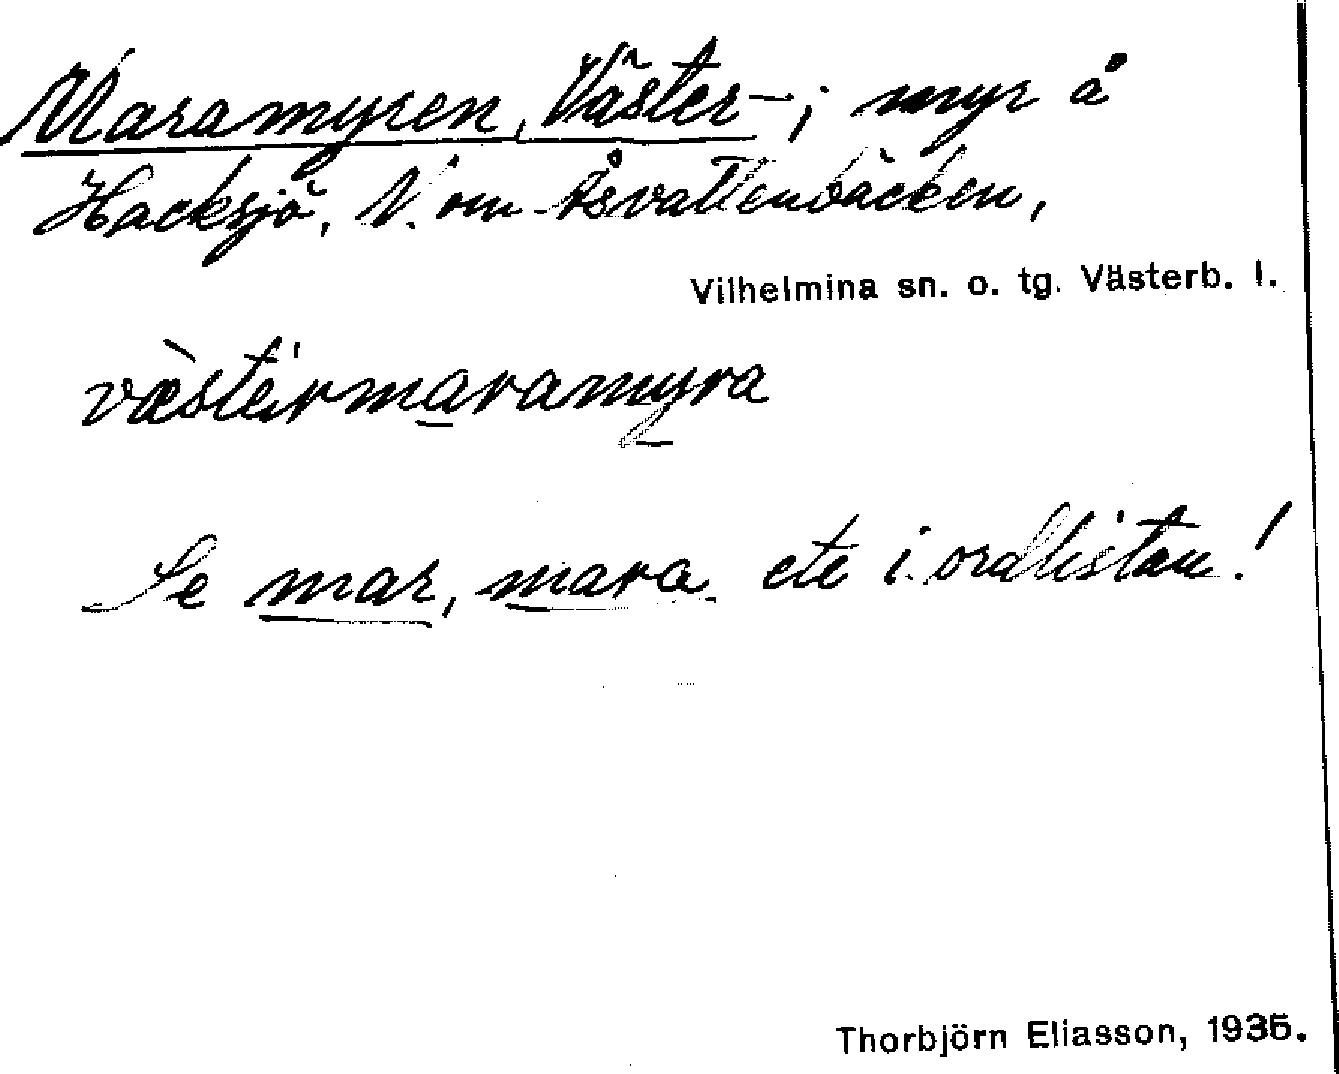 Maramyren, Väster-; myr å
Hacksjö, V. om Åsvattenbäcken,
Vilhelmina sn. o. tg. Västerb. l.
væ̀steirmaramyra
Se mar, mara etc i ordlistan!
Thorbjörn Eliasson, 1935.